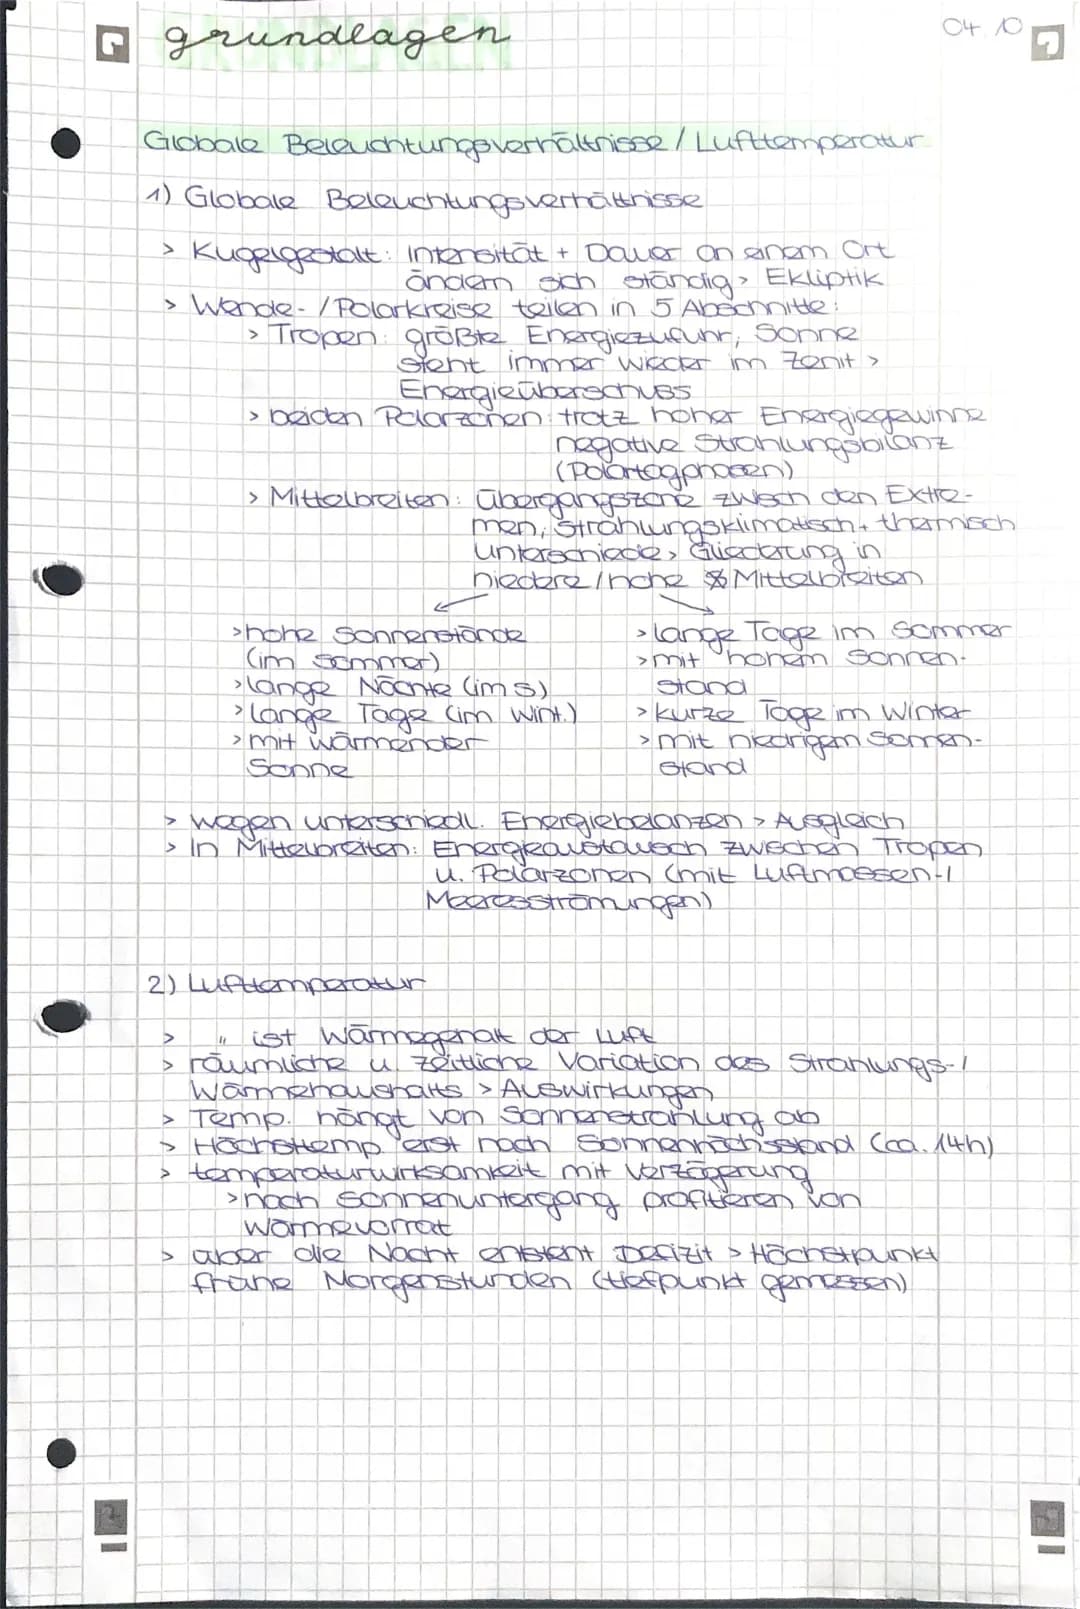 grundlagen
04.10
Globale Beleuchtungsverhältnisse / Lufttemperatur
1) Globale Beleuchtungsverhältnisse
> Kugelgestalt: Intensität + Dauer an einem Ort
ändern sich ständig > Ekliptik
> Wende-/Polarkreise teilen in 5 Abschnitte:
> Tropen: größte Energiezufuhr, Sonne
steht immer wieder im Zenit >
Energieüberschuss
> beiden Polarzonen: trotz hoher Energiegewinne
negative Strahlungsbilanz
(Polartagphasen)
> Mittelbreiten: Übergangszone zwisch den Extre-
men, strahlungsklimatisch + thermisch
unterschiede > Gliederung in
niedere / hohe Mittelbreiten
> hohe Sonnenstände
(im Sommer)
> lange Nächte (im S)
> lange Tage (im Wint.)
> mit wärmender
Sonne
> lange Tage im Sommer
> mit hohem Sonnen-
stand
> kurze Tage im Winter
> mit niedrigem Sonnen-
stand
> wegen unterschiedl. Energiebelanzen > Ausgleich
> In Mittelbreiten: Energieaustausch zwischen Tropen
u. Polarzonen (mit Luftmassen-/
Meeresströmungen)
2) Lufttemperatur
> " ist Wärmegehalt der Luft
> räumliche u. zeitliche Variation des Strahlungs-/
Wärmehaushalts > Auswirkungen
> Temp. hängt von Sonnenstrahlung ab
> Höchsttemp. erst nach Sonnenhöchsstand (ca. 14h)
> temperaturwirksamkeit mit Verzögerung
> nach Sonnenuntergang profitieren von
Wärmevorrat
> aber die Nacht entsteht Defizit > Höchstpunkt
frühe Morgenstunden (tiefpunkt gemessen)